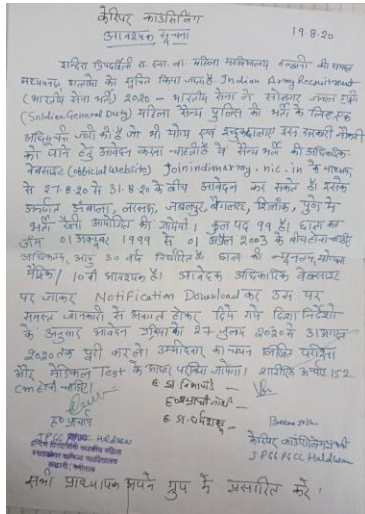 केरियर काउंसिलिंग
आवश्यक सूचना 19.8.20
इन्दिरा प्रियदर्शिनी रा. स्ना. वा. महिला महाविद्यालय हल्द्वानी की समस्त
छात्राओं को सूचित किया जाता है Indian Army Recruitment
(भारतीय सेना भर्ती) 2020 - भारतीय सेना में सोल्जर जनरल ड्यूटी
(Soldier General Duty) महिला सैन्य पुलिस की भर्ती के लिए एक
अधिसूचना जारी की है जो भी योग्य एवं इच्छुक छात्राएं इस सरकारी नौकरी
को पाने हेतु आवेदन करना चाहती है वे सैन्य भर्ती की आधिकारिक
वेबसाइट (official website) Joinindianarmy.nic.in के माध्यम
से 27.8.20 से 31.8.20 के बीच आवेदन कर सकते है। इसके
अन्तर्गत अंबाला, लखनऊ, जबलपुर, बैंगलोर, शिलांग, पुणे में
भर्ती रैली आयोजित की जायेगी। कुल पद 99 है। छात्रा का
जन्म 01 अक्टूबर 1999 से 01 अप्रैल 2003 के बीच होना चाहिए
अधिकतम आयु 30 वर्ष निर्धारित है। छात्रा की न्यूनतम योग्यता
मैट्रिक / 10वी आवश्यक है। आवेदक आधिकारिक वेबसाइट
पर जाकर Notification Download कर उस पर
समस्त जानकारी से अवगत होकर दिये गये दिशा निर्देशो
के अनुसार आवेदन प्रक्रिया को 27 जुलाई 2020 से 31 अगस्त
2020 तक पूरी कर लें। उम्मीदवार का चयन लिखित परीक्षा
और मेडिकल Test के आधार पर किया जायेगा। शारीरिक ऊंचाई 152
cm होनी चाहिए।
ह० प्राचार्य
IPGGPGCC Haldwani
इन्दिरा प्रियदर्शिनी राजकीय महिला
स्नातकोत्तर वाणिज्य महाविद्यालय
हल्द्वानी (नैनीताल)
केरियर काउंसिलिंग प्रभारी
IPGGPGCC Haldwani
सभी प्राध्यापक अपने ग्रुप में प्रसारित करें।